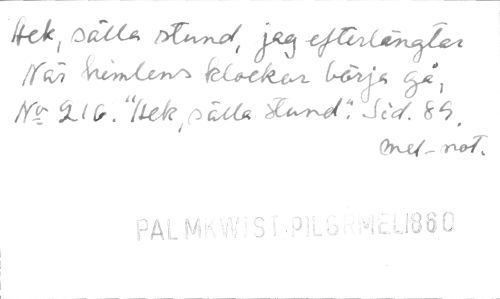 Ack, sälla stund, jag efterlängtar
När himlens klockor börja gå,
No 216. "Ack, sälla stund". Sid. 89.
mel-not.
PALMKWIST: PILGRMEL1860